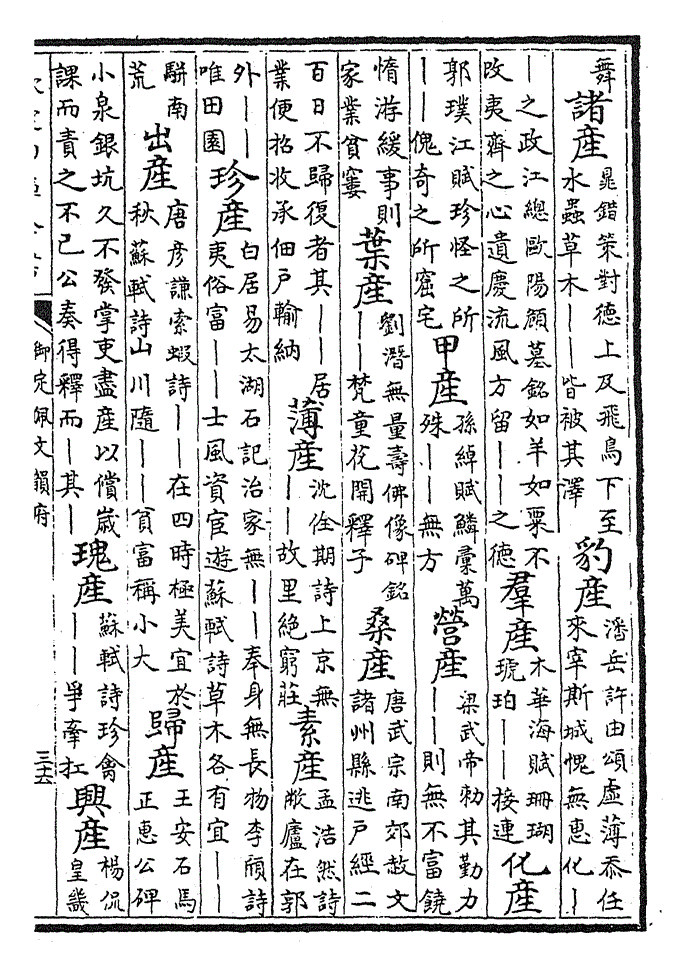 舞諸產晁錯策對德上及飛鳥下至水蟲草木——皆被其澤豹產潘岳許由頌虛薄忝任來宰斯城愧無惠化—
—之政江總歐陽頠墓銘如羊如粟不改夷齊之心遺慶流風方留——之德羣產木華海賦珊瑚琥珀——接連化產
郭璞江賦珍怪之所——傀奇之所窟宅甲產孫綽賦鱗彙萬殊——無方營產梁武帝勑其勤力——則無不富饒
惰游緩事則家業貧窶葉產劉潛無量壽佛像碑銘——梵童花開釋子桑產唐武宗南郊赦文諸州縣逃戶經二
百日不歸復者其——居業便招收承佃戶輸納薄產沈佺期詩上京無——故里絕窮莊素產孟浩然詩敝廬在郭
外——唯田園珍產白居易太湖石記治家無——奉身無長物李頎詩夷俗富——士風資宦遊蘇軾詩草木各有宜——
駢南荒出產唐彥謙索蝦詩——在四時極美宜於秋蘇軾詩山川隨——貧富稱小大歸產王安石馬正惠公碑
小泉銀坑久不發掌吏盡產以償歲課而責之不已公奏得釋而—其—瑰產蘇軾詩珍禽——爭牽扛興產楊侃皇畿
御定佩文韻府
三十六